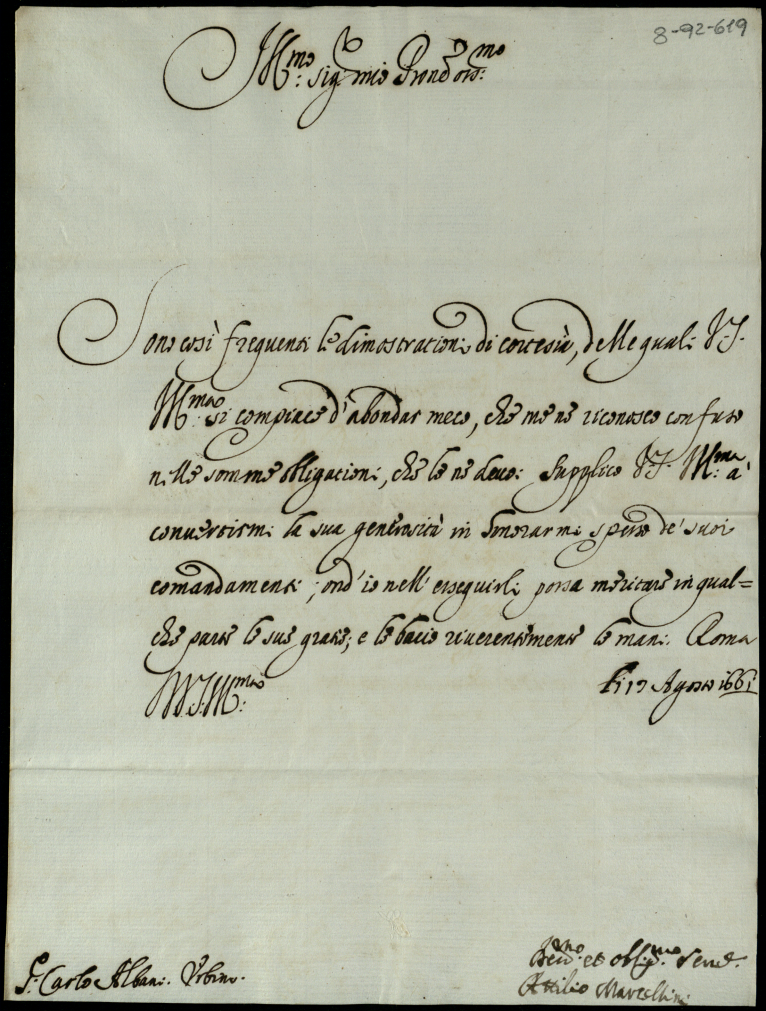 8-92-619
Ill.mo Sig.r mio Pron Oss.mo
Sono così frequenti le dimostrationi di cortesia, delle quali V.S.
Ill.ma si compiace d'abondar meco, che me ne riconosco confuso
nelle somme obligationi, che le ne devo: Supplico V.S. Ill.ma à
convertirmi la sua generosità in honorarmi spesso de' suoi
comandamenti; ond'io nell'esseguirli possa meritare in qual=
che parte le sue gratie; e le bacio riverentemente le mani. Roma
li 17 Agosto 1661
D.V.S. Ill.ma
S.r Carlo Albani. Urbino.
Dev.mo et oblig.mo Serv.
Attilio Marcellini